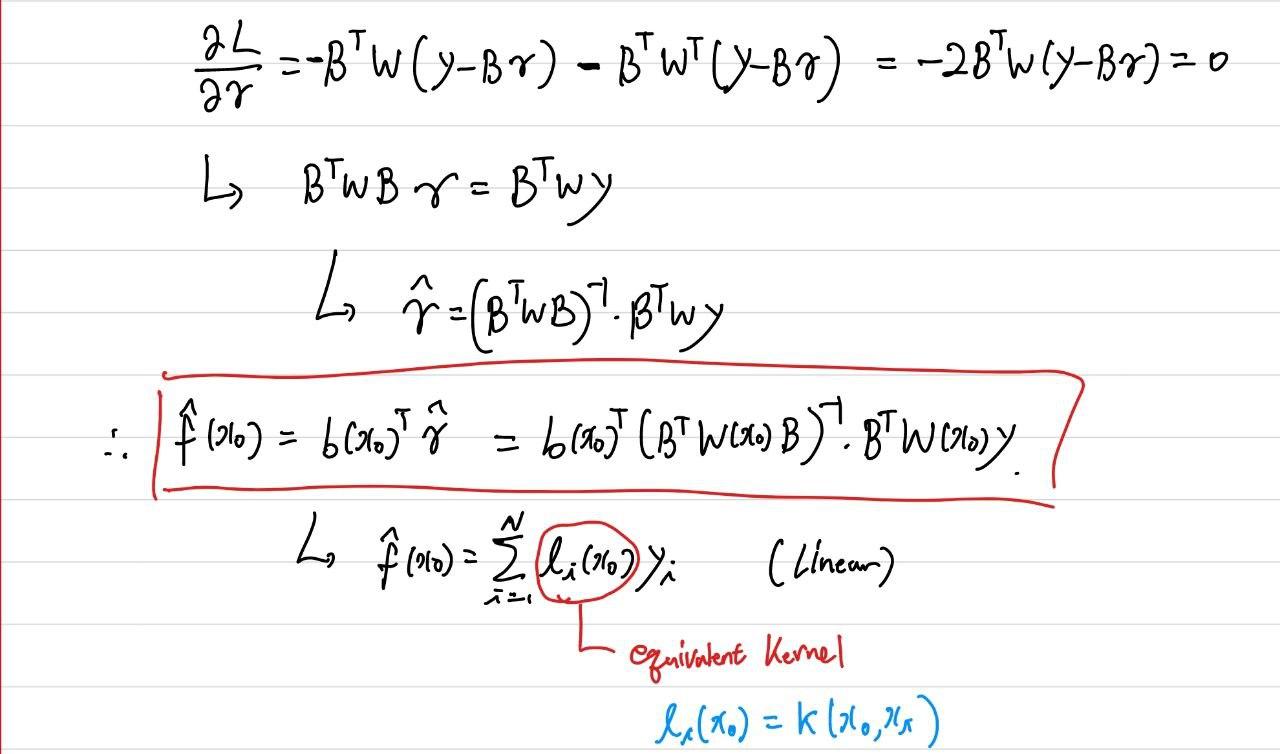 ∂L/∂γ = -BᵀW(y-Bγ) - BᵀWᵀ(y-Bγ) = -2BᵀW(y-Bγ) = 0
↳ BᵀWBγ = BᵀWy
↳ γ̂ = (BᵀWB)⁻¹·BᵀWy
∴ f̂(x₀) = b(x₀)ᵀγ̂ = b(x₀)ᵀ(BᵀW(x₀)B)⁻¹·BᵀW(x₀)y.
↳ f̂(x₀) = Σᵢ₌₁ᴺ lᵢ(x₀)yᵢ (Linear)
equivalent Kernel
lᵢ(x₀) = k(x₀,xᵢ)